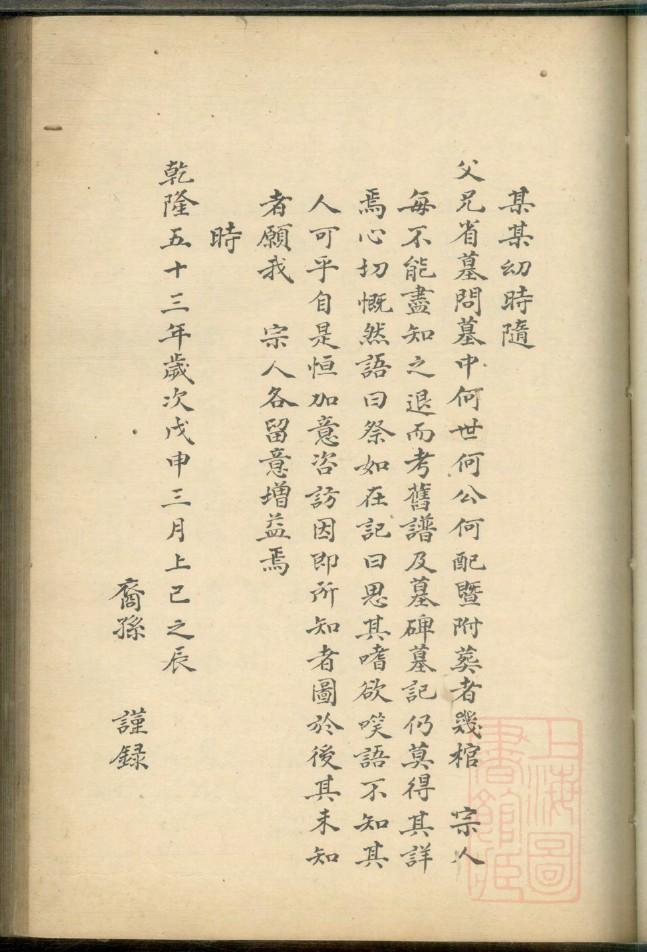 某某幼時隨
父兄省墓問墓中何世何公何配暨附葬者幾棺　宗人
每不能盡知之退而考舊譜及墓碑墓記仍莫得其詳
焉心切慨然語曰祭如在記曰思其嗜欲唉語不知其
人可乎自是恒加意咨訪因即所知者圖於後其未知
者願我　宗人各留意增益焉
時
乾隆五十三年歲次戊申三月上巳之辰
裔孫　謹録
上海圖書館藏